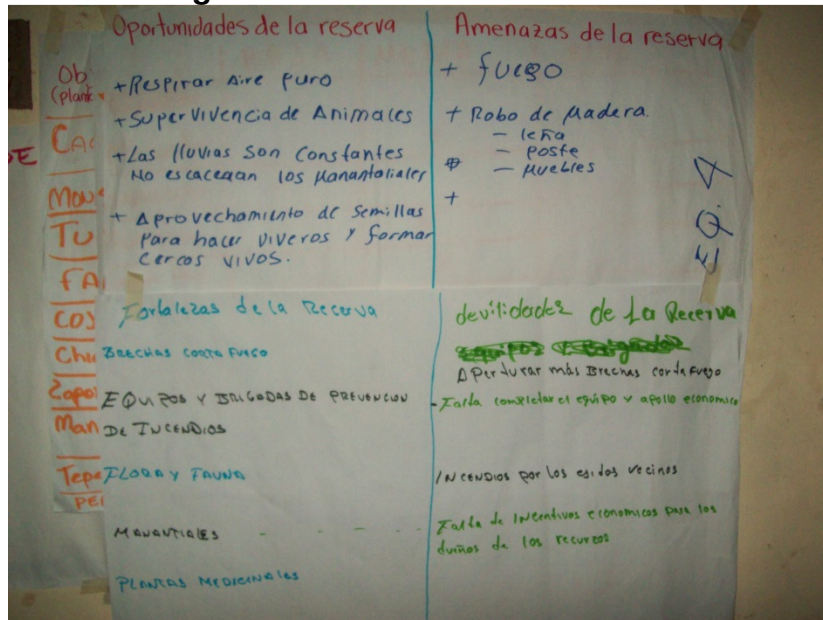 Oportunidades de la reserva
+ Respirar Aire puro
+ Supervivencia de Animales
+ Las lluvias Son Constantes
No escacean los Manantaliales
+ Aprovechamiento de Semillas
Para hacer viveros y formar
Cercos vivos.
Amenazas de la reserva
+ fuego
+ Robo de Madera.
- leña
- poste
- Muebles
+
EQ. 4
Fortalezas de la Recerva
Brechas corta fuego
Equipos y Brigadas de prevencion
De Incendios
Flora y Fauna
Manantiales - - - -
Plantas Medicinales
devilidades de La Recerva
Aperturar más Brechas corta fuego
- Falta completar el equipo y apollo economico
Incendios por los egidos vecinos
Falta de Incentivos economicos para los
dueños de los recurcos
Ob
(plant
Cac
Mon
TU
FA
COS
Chi
Zapo
Man
Tepe
PE
E